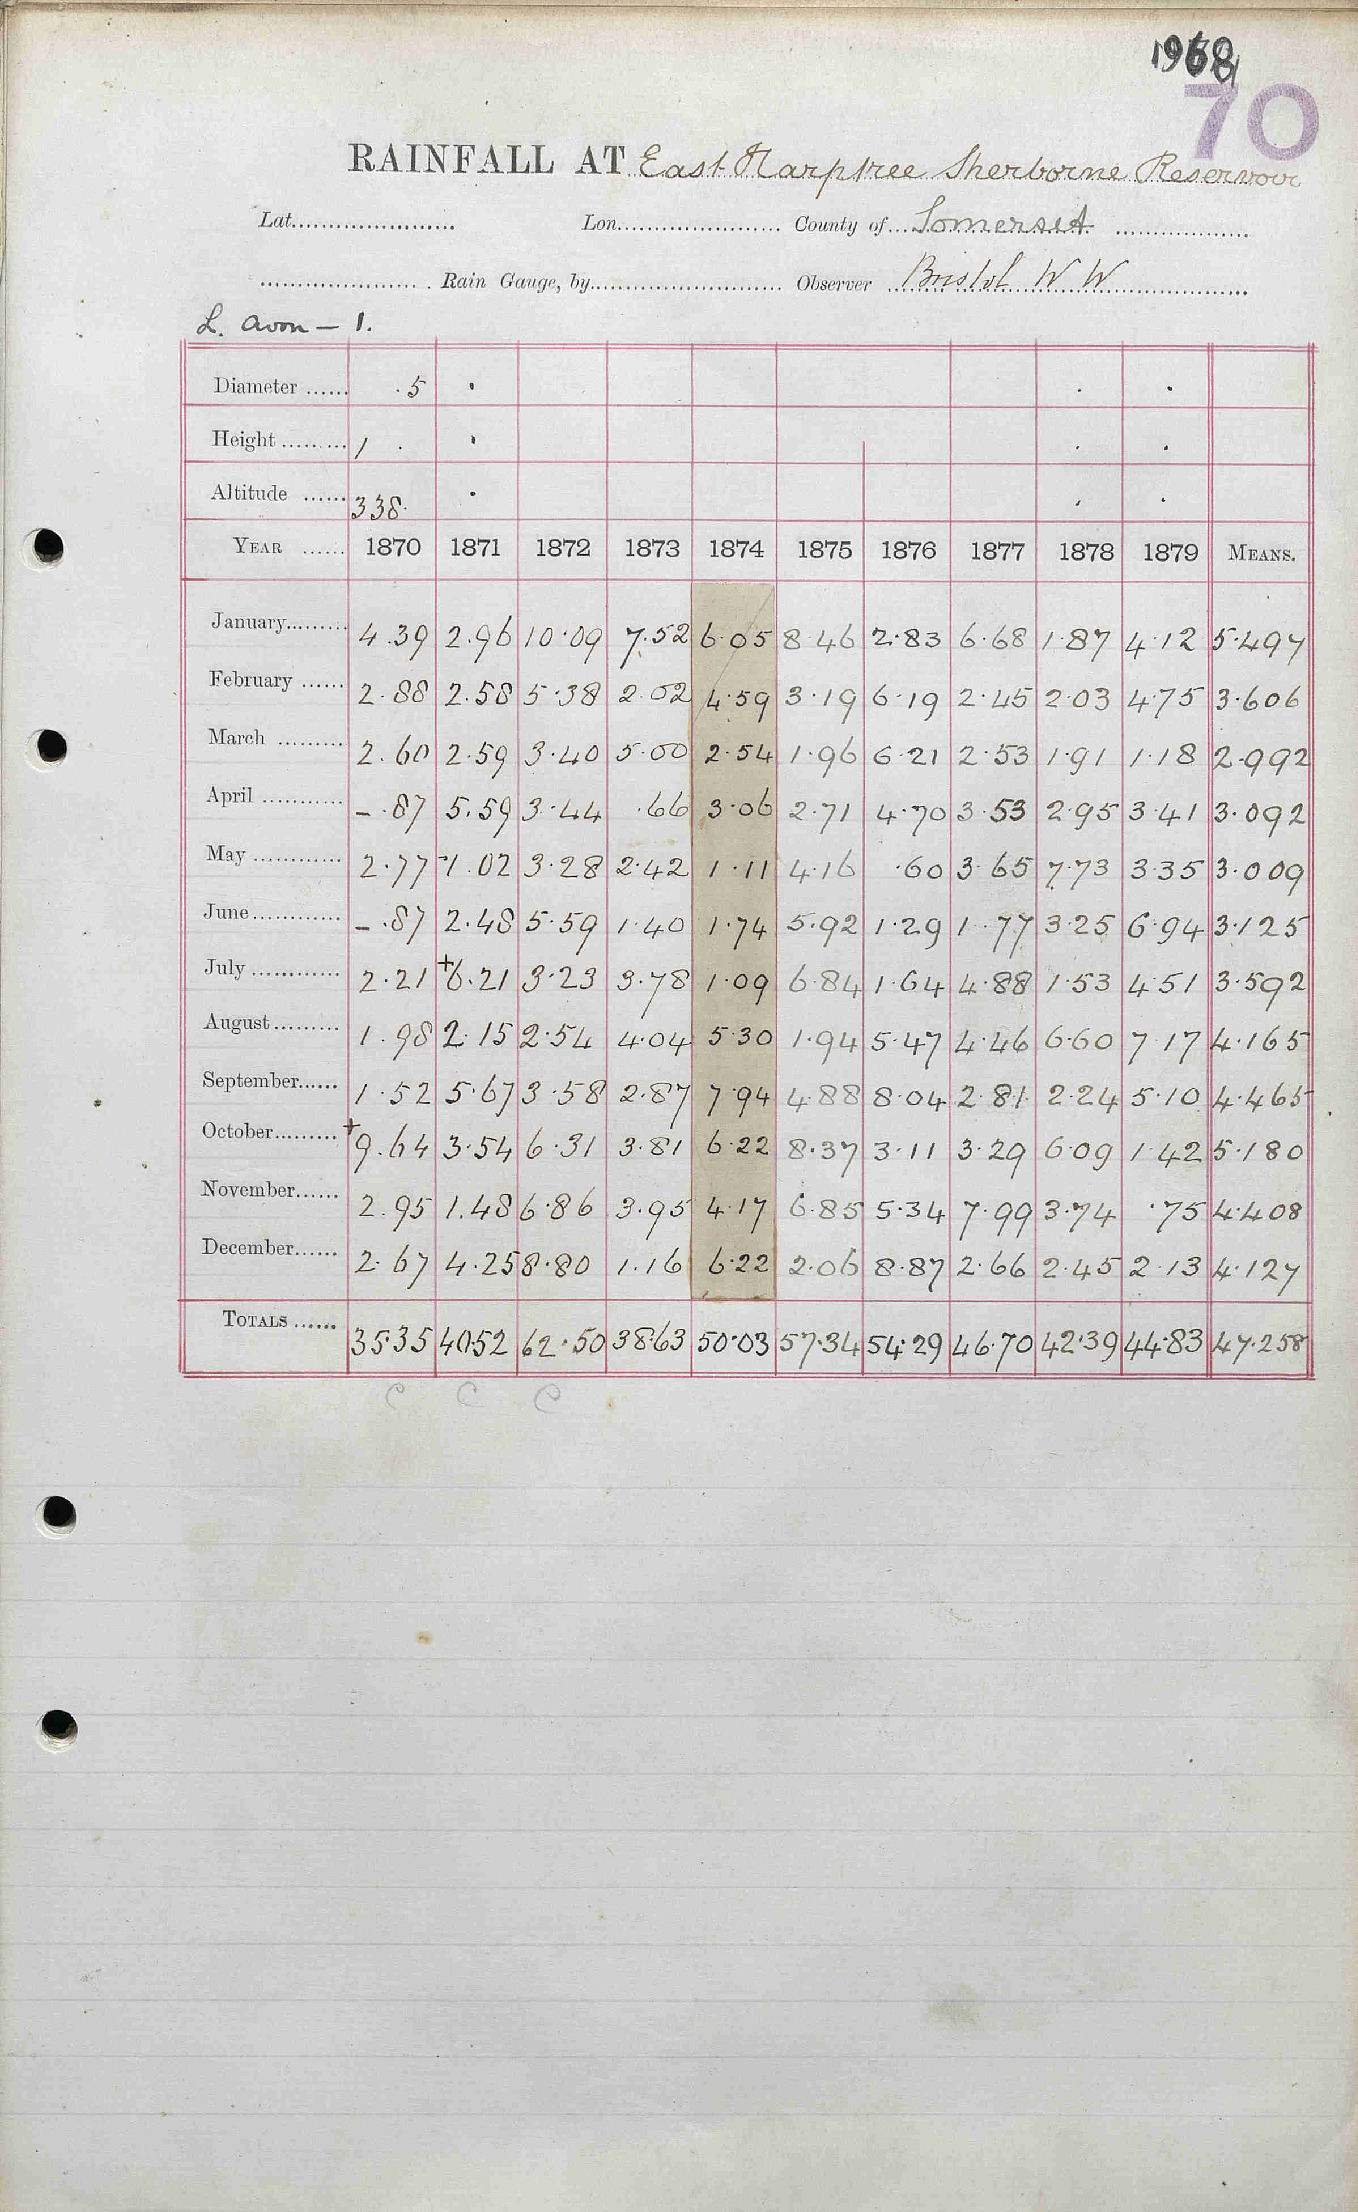 70
RAINFALL AT East Harptree Sherborne Reservoir
Lat. Lon. County of Somerset
Rain Gauge, by Observer Bristol W W
L. Avon – 1.
Diameter ...... .5
Height ......... 1
Altitude ...... 338
YEAR ...... 1870 1871 1872 1873 1874 1875 1876 1877 1878 1879 MEANS.
January......... 4.39 2.96 10.09 7.52 6.05 8.46 2.83 6.68 1.87 4.12 5.497
February ...... 2.88 2.58 5.38 2.02 4.59 3.19 6.19 2.45 2.03 4.75 3.606
March ......... 2.60 2.59 3.40 5.00 2.54 1.96 6.21 2.53 1.91 1.18 2.992
April ............ – .87 5.59 3.44 .66 3.06 2.71 4.70 3.53 2.95 3.41 3.092
May ............. 2.77 – 1.02 3.28 2.42 1.11 4.16 .60 3.65 7.73 3.35 3.009
June............. – .87 2.48 5.59 1.40 1.74 5.92 1.29 1.77 3.25 6.94 3.125
July ............. 2.21 +6.21 3.23 3.78 1.09 6.84 1.64 4.88 1.53 4.51 3.592
August.......... 1.98 2.15 2.54 4.04 5.30 1.94 5.47 4.46 6.60 7.17 4.165
September...... 1.52 5.67 3.58 2.87 7.94 4.88 8.04 2.81 2.24 5.10 4.465
October......... +9.64 3.54 6.31 3.81 6.22 8.37 3.11 3.29 6.09 1.42 5.180
November...... 2.95 1.48 6.86 3.95 4.17 6.85 5.34 7.99 3.74 .75 4.408
December...... 2.67 4.25 8.80 1.16 6.22 2.06 8.87 2.66 2.45 2.13 4.127
TOTALS ...... 35.35 40.52 62.50 38.63 50.03 57.34 54.29 46.70 42.39 44.83 47.258
C C C